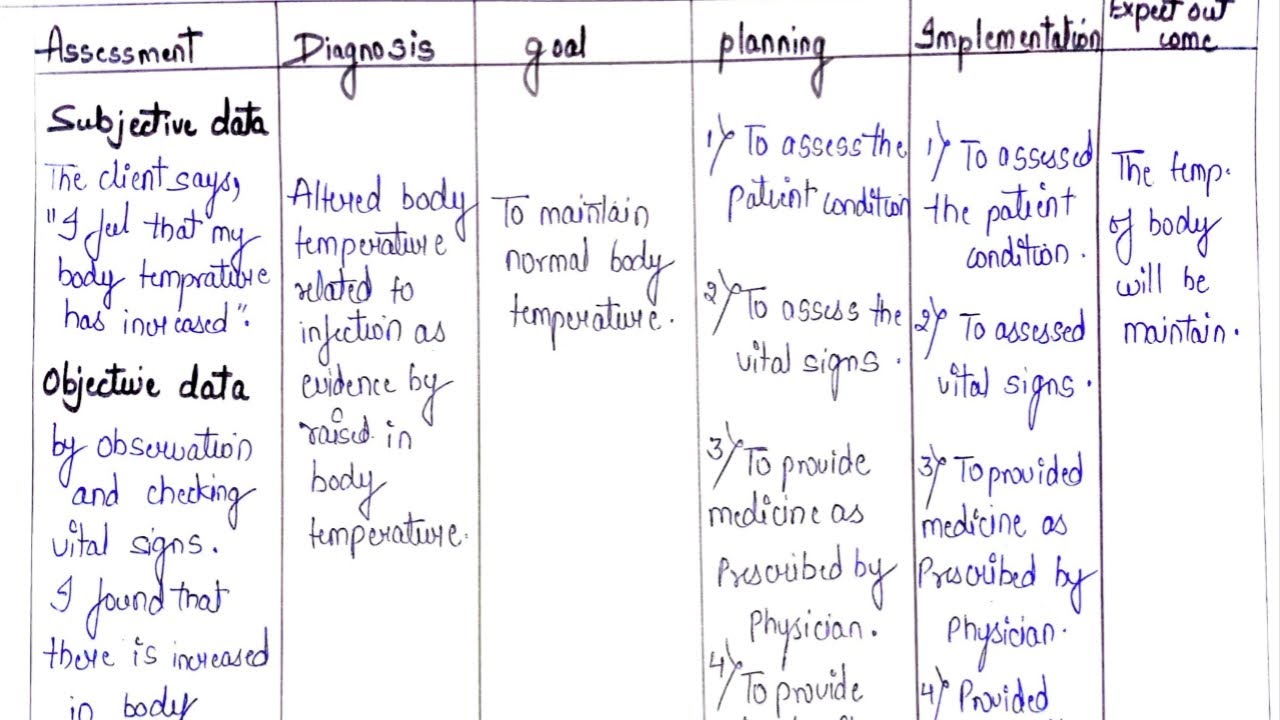 Assessment
Diagnosis
goal
planning
Implementation
Expect out
come
Subjective data
The client says,
"I feel that my
body temprature
has increased".
Objective data
by observation
and checking
vital signs.
I found that
there is increased
in body
Altered body
temperature
related to
infection as
evidence by
raised in
body
temperature.
To maintain
normal body
temperature.
1) To assess the
patient condition
2) To assess the
vital signs.
3) To provide
medicine as
Prescribed by
Physician.
4) To provide
1) To assessed
the patient
condition.
2) To assessed
vital signs.
3) To provided
medicine as
Prescribed by
Physician.
4) Provided
The temp.
of body
will be
maintain.